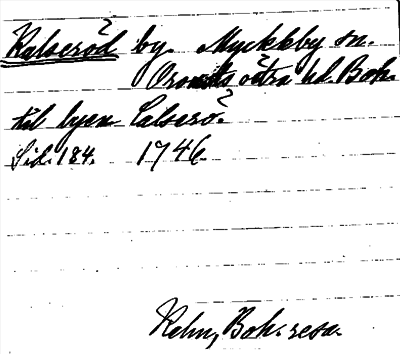 Kalseröd by. Myckleby sn.
Orousts östra hd. Boh.
till byen Calserö.
Sid. 184. 1746.
Kalm, Boh. resa.